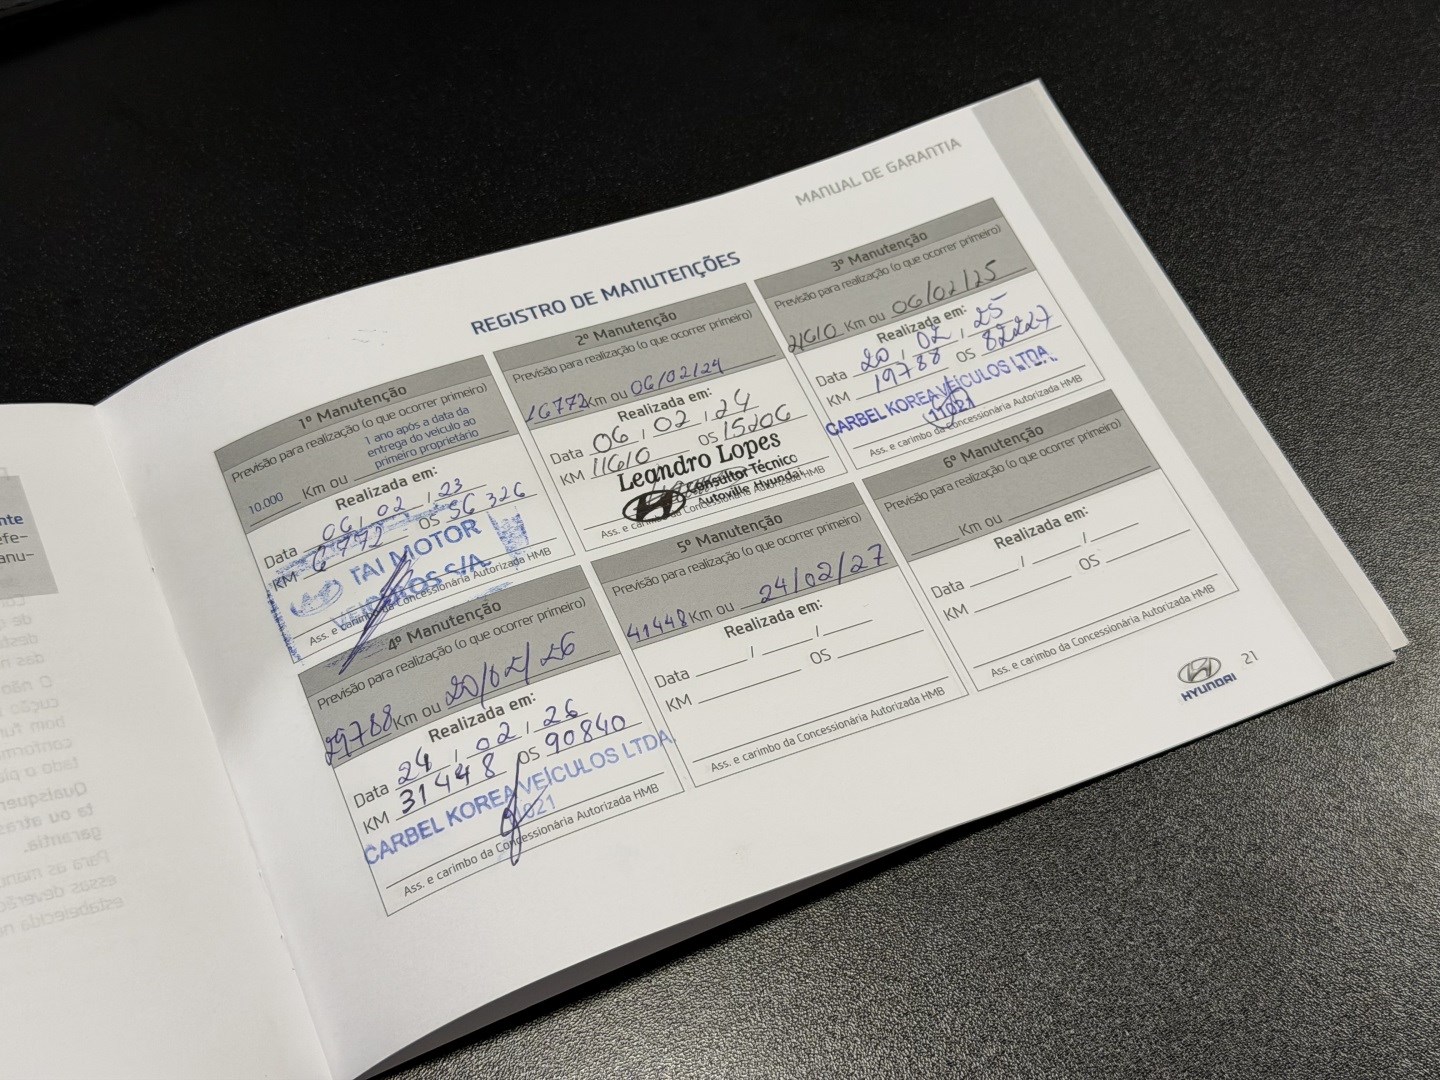 MANUAL DE GARANTIA
REGISTRO DE MANUTENÇÕES
1º Manutenção
Previsão para realização (o que ocorrer primeiro)
10.000 Km ou 1 ano após a data da
entrega do veículo ao
primeiro proprietário
Realizada em:
Data 06, 02, 23
KM 6772 OS 56 326
TAI MOTOR
VEÍCULOS S/A.
Ass. e carimbo da Concessionária Autorizada HMB
2º Manutenção
Previsão para realização (o que ocorrer primeiro)
16772 Km ou 06/02/24
Realizada em:
Data 06, 02, 24
KM 11610 OS 15206
Leandro Lopes
Consultor Técnico
Autoville Hyundai
Ass. e carimbo da Concessionária Autorizada HMB
3º Manutenção
Previsão para realização (o que ocorrer primeiro)
21610 Km ou 06/02/25
Realizada em:
Data 20, 02, 25
KM 19788 OS 82227
CARBEL KOREA VEÍCULOS LTDA.
11021
Ass. e carimbo da Concessionária Autorizada HMB
4º Manutenção
Previsão para realização (o que ocorrer primeiro)
29788 Km ou 20/02/26
Realizada em:
Data 24, 02, 26
KM 31448 OS 90840
CARBEL KOREA VEÍCULOS LTDA.
11021
Ass. e carimbo da Concessionária Autorizada HMB
5º Manutenção
Previsão para realização (o que ocorrer primeiro)
41448 Km ou 24/02/27
Realizada em:
Data / /
KM OS
Ass. e carimbo da Concessionária Autorizada HMB
6º Manutenção
Previsão para realização (o que ocorrer primeiro)
Km ou
Realizada em:
Data / /
KM OS
Ass. e carimbo da Concessionária Autorizada HMB
HYUNDAI
21